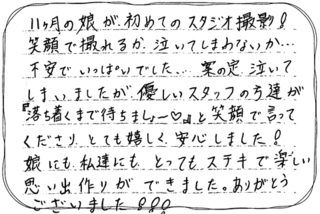 11ヶ月の娘が初めてのスタジオ撮影!
笑顔で撮れるか泣いてしまわないか…
不安でいっぱいでした…案の定泣いて
しまいましたが、優しいスタッフの方達が
『落ち着くまで待ちましょ〜♡』と笑顔で言って
くださり、とても嬉しく安心しました!
娘にも私達にもとってもステキで楽しい
思い出作りができました。ありがとう
ございました!!!